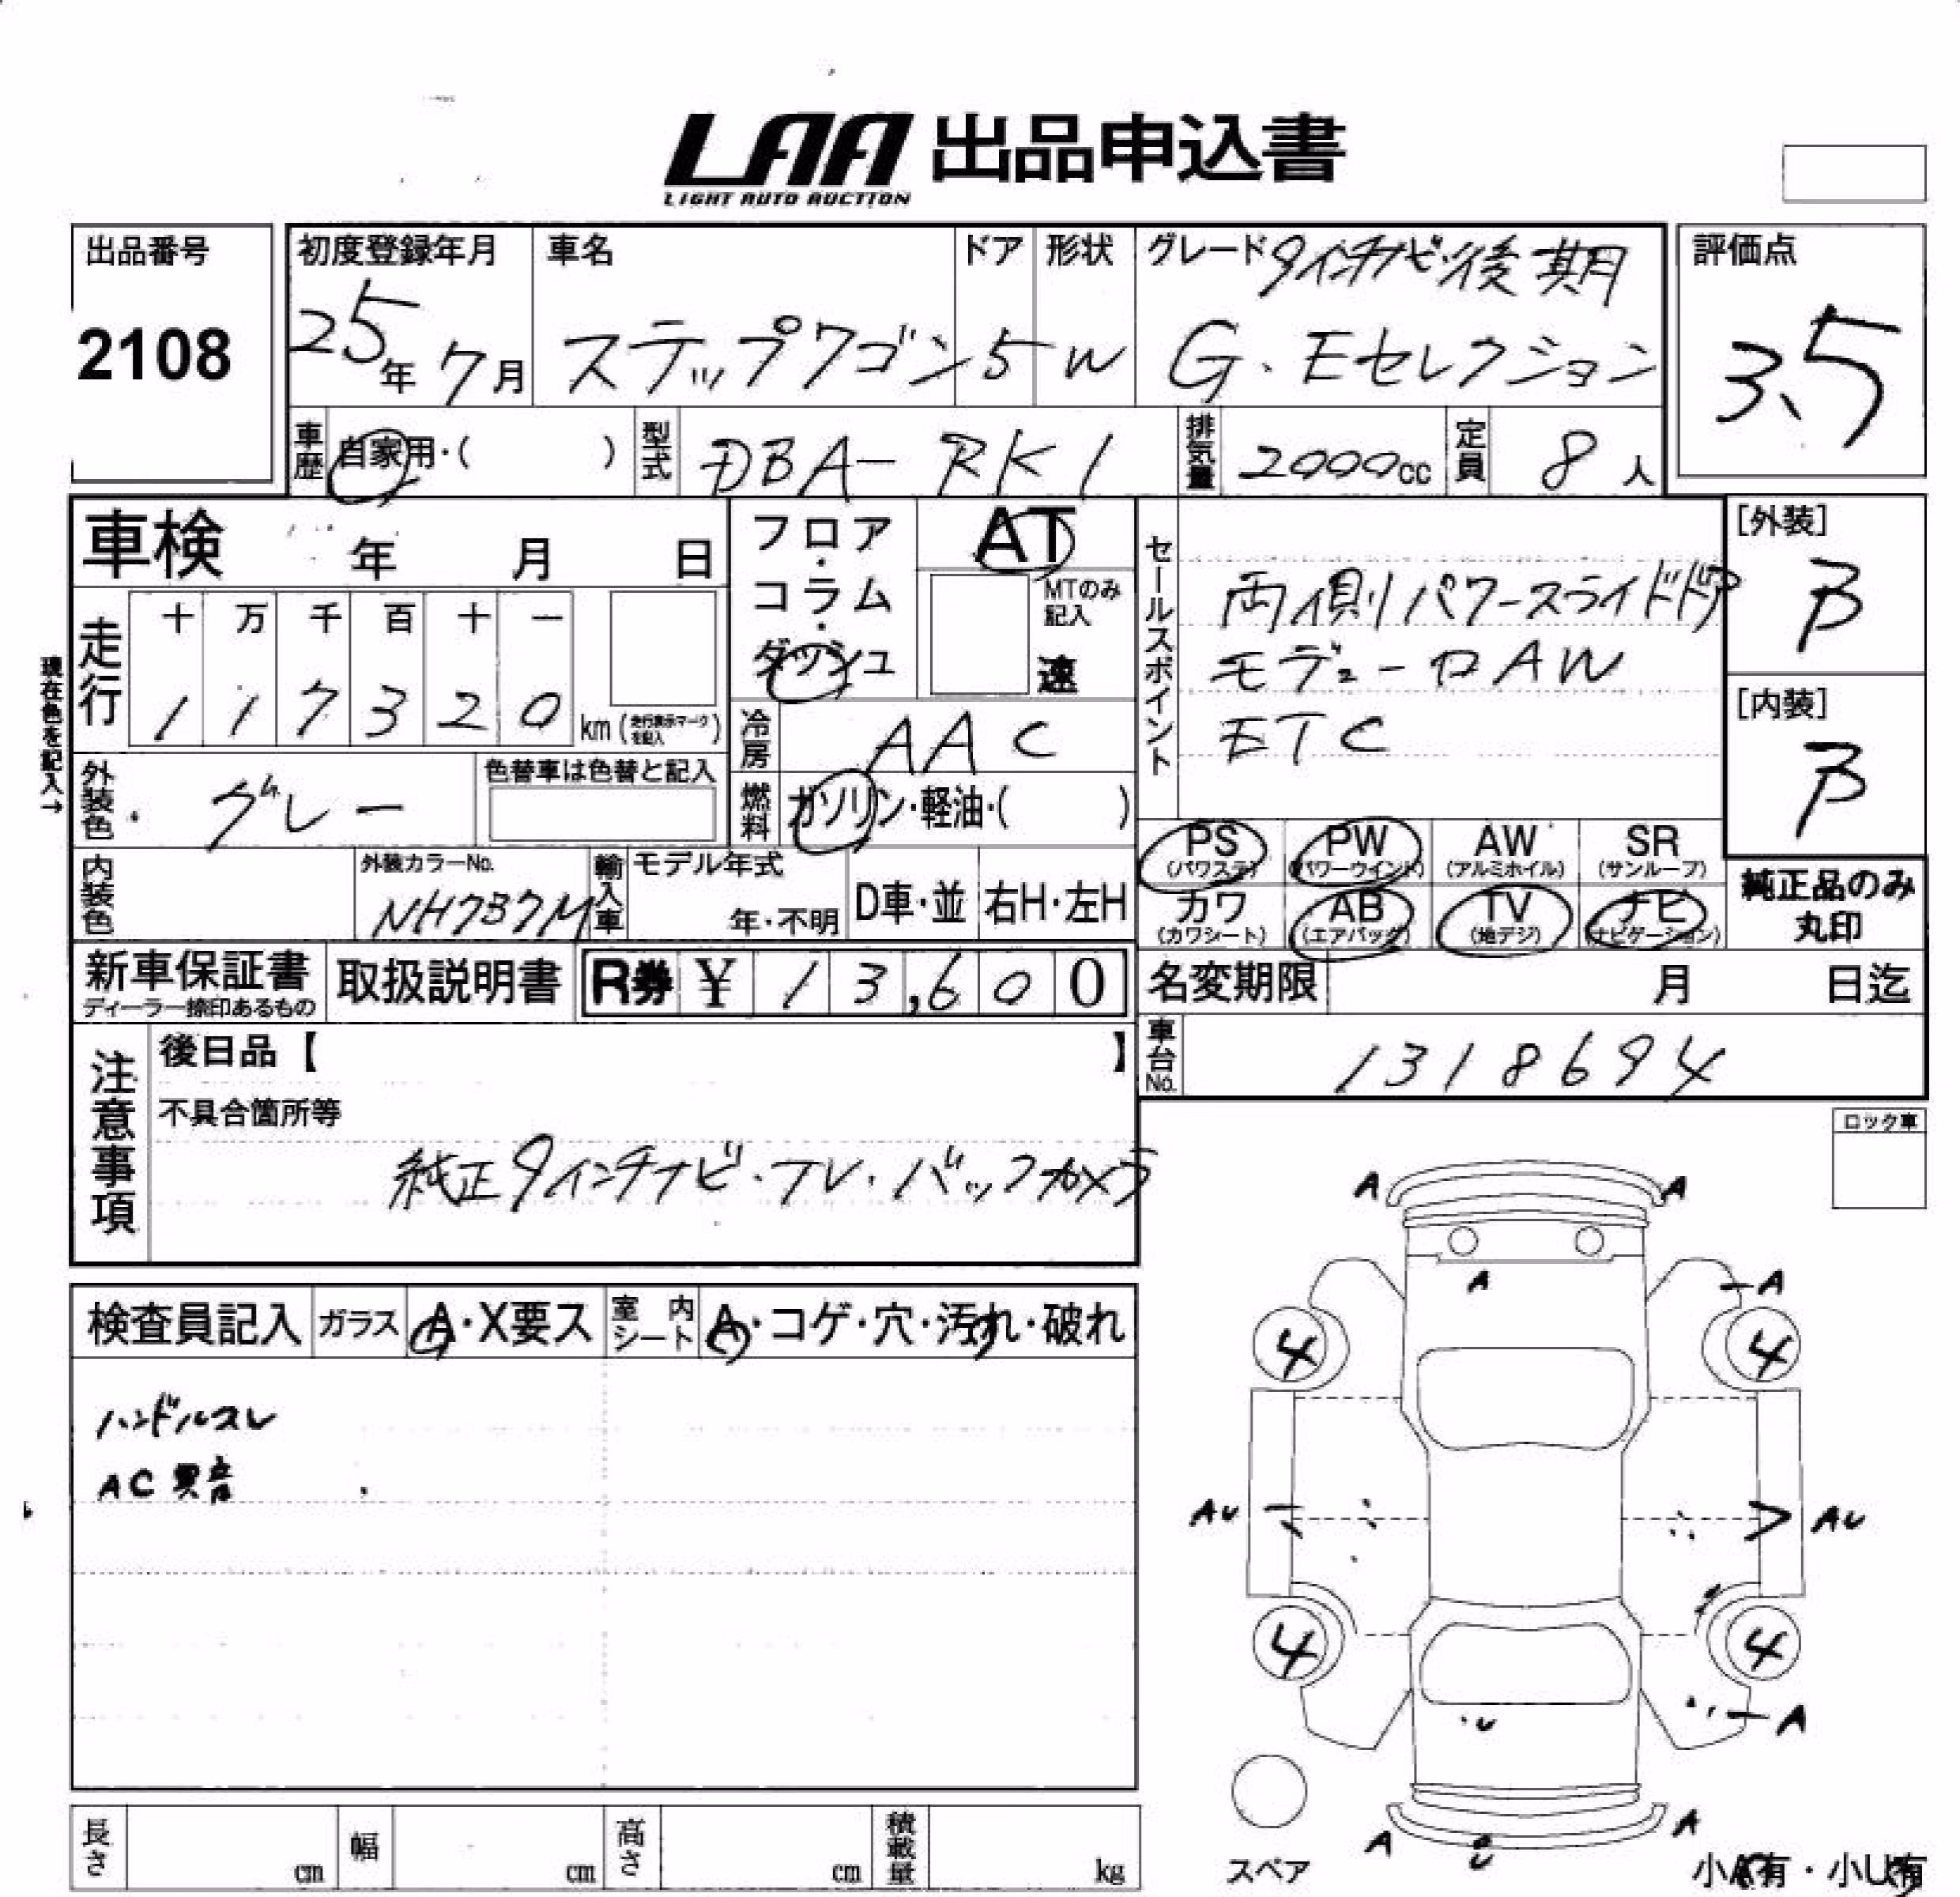 LAA 出品申込書
LIGHT AUTO AUCTION
出品番号
2108
初度登録年月
25年7月
車名
ステップワゴン
ドア
5
形状
W
グレード 9インチナビ・後期
G・Eセレクション
評価点
3.5
車歴
自家用・( )
型式
DBA-RK1
排気量
2000cc
定員
8人
車検 年 月 日
フロア・コラム・ダッシュ
AT
MTのみ記入
速
セールスポイント
両側パワースライドドア
モデューロAW
ETC
[外装]
B
[内装]
B
現在色を記入→
走行
十 万 千 百 十 一
1 1 7 3 2 0 km (走行表示マークを記入)
冷房
AAC
外装色
グレー
色替車は色替と記入
燃料
ガソリン・軽油・( )
内装色
外装カラーNo.
NH737M
輸入車
モデル年式
年・不明
D車・並
右H・左H
PS (パワステ)
PW (パワーウインド)
AW (アルミホイル)
SR (サンルーフ)
カワ (カワシート)
AB (エアバック)
TV (地デジ)
ナビ (ナビゲーション)
純正品のみ
丸印
新車保証書
ディーラー捺印あるもの
取扱説明書
R券 ¥ 13,600
名変期限 月 日迄
車台No.
1318694
注意事項
後日品【 】
不具合箇所等
純正9インチナビ・TV・バックカメラ
ロック車
検査員記入
ガラス
A・X要ス
室内シート
A・コゲ・穴・汚れ・破れ
ハンドルスレ
AC異音
A A
A
A
4 4
AU AU
4 4
U
A
A
U
A
スペア
小A有・小U有
長さ cm
幅 cm
高さ cm
積載量 kg